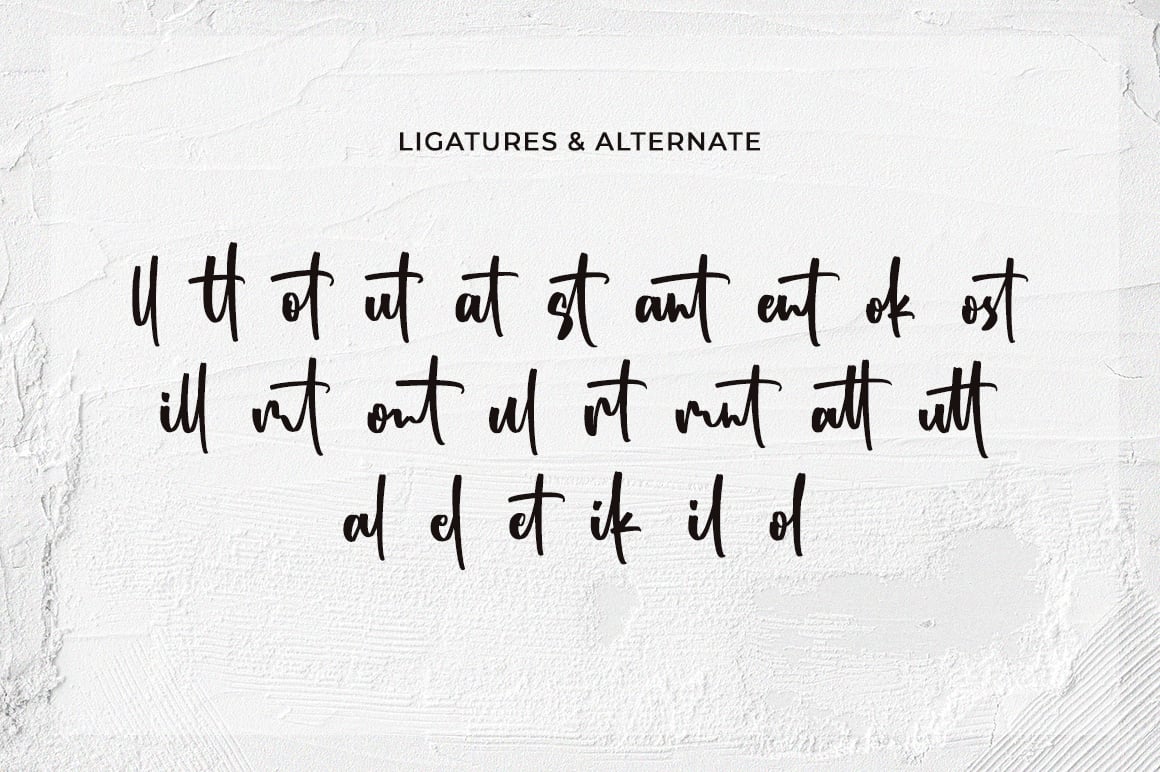 LIGATURES & ALTERNATE
ll tt ot ut at st ant ent ok ost
ill int ont ul rt mnt att utt
al el et ik il ol